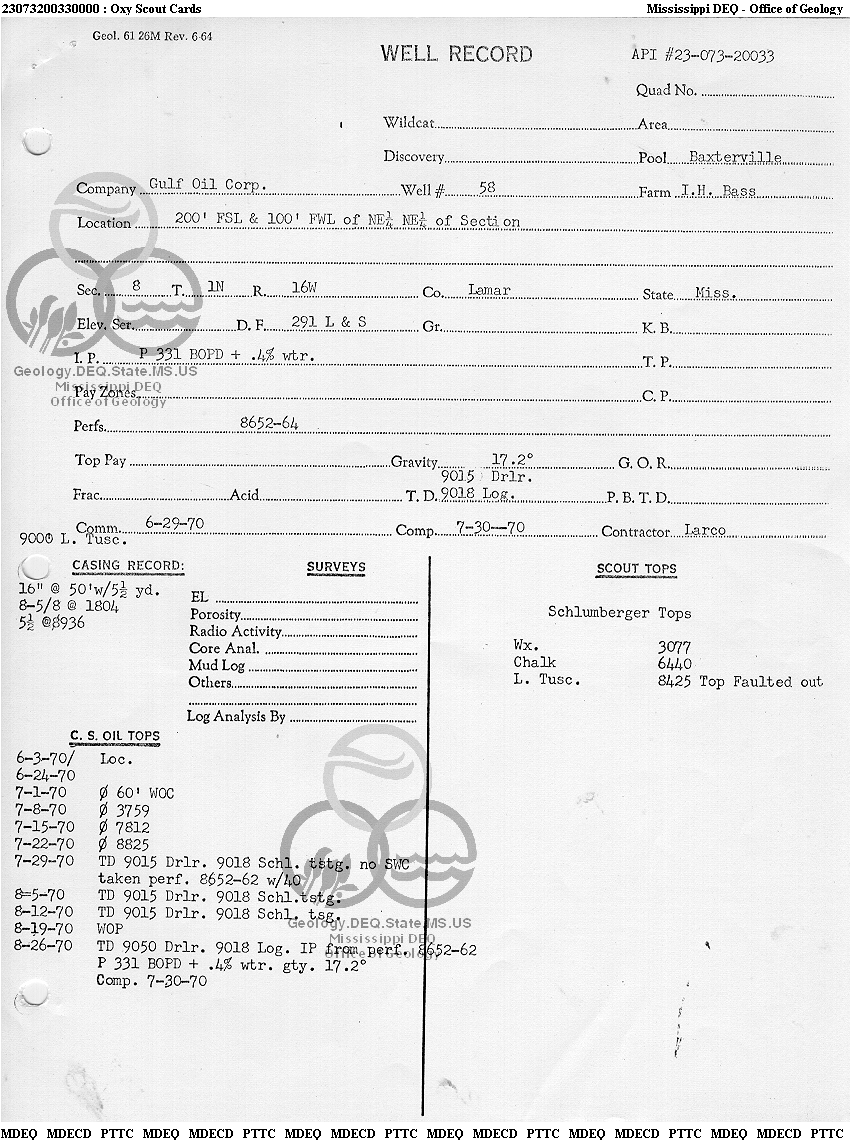 23073200330000 : Oxy Scout Cards Mississippi DEQ - Office of Geology
Geol. 61 26M Rev. 6-64
WELL RECORD API #23-073-20033
Quad No.
Wildcat Area
Discovery Pool Baxterville
Company Gulf Oil Corp. Well # 58 Farm I.H. Bass
Location 200' FSL & 100' FWL of NE¼ NE¼ of Section
Sec. 8 T. 1N R. 16W Co. Lamar State Miss.
Elev. Ser. D. F. 291 L & S Gr. K. B.
I. P. P 331 BOPD + .4% wtr. T. P.
Geology.DEQ.State.MS.US
Mississippi DEQ
Office of Geology
Pay Zones C. P.
Perfs. 8652-64
Top Pay Gravity 17.2° G. O. R.
9015 Drlr.
Frac. Acid T. D. 9018 Log. P. B. T. D.
Comm. 6-29-70 Comp. 7-30--70 Contractor Larco
9000 L. Tusc.
CASING RECORD: SURVEYS SCOUT TOPS
16" @ 50'w/5½ yd.
8-5/8 @ 1804
5½ @8936
EL
Porosity
Radio Activity
Core Anal.
Mud Log
Others
Log Analysis By
Schlumberger Tops
Wx. 3077
Chalk 6440
L. Tusc. 8425 Top Faulted out
C. S. OIL TOPS
6-3-70/ Loc.
6-24-70
7-1-70 Ø 60' WOC
7-8-70 Ø 3759
7-15-70 Ø 7812
7-22-70 Ø 8825
7-29-70 TD 9015 Drlr. 9018 Schl. tstg. no SWC
taken perf. 8652-62 w/40
8=5-70 TD 9015 Drlr. 9018 Schl.tstg.
8-12-70 TD 9015 Drlr. 9018 Schl. tsg.
8-19-70 WOP
8-26-70 TD 9050 Drlr. 9018 Log. IP from perf. 8652-62
P 331 BOPD + .4% wtr. gty. 17.2°
Comp. 7-30-70
Geology.DEQ.State.MS.US
Mississippi DEQ
Office of Geology
MDEQ MDECD PTTC MDEQ MDECD PTTC MDEQ MDECD PTTC MDEQ MDECD PTTC MDEQ MDECD PTTC MDEQ MDECD PTTC